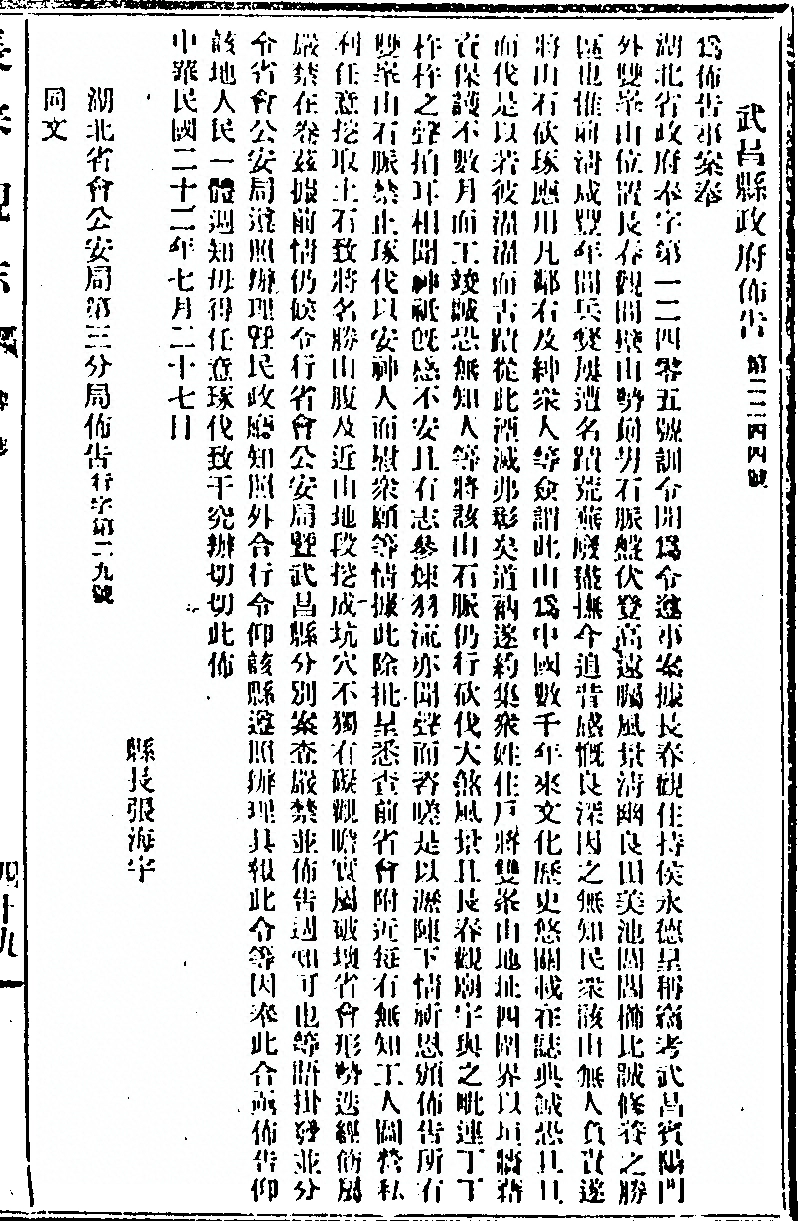 武昌縣政府佈告 第二二四四號
爲佈告事案奉
湖北省政府奉字第一二四零五號訓令開爲令遵事案據長春觀住持侯永德呈稱竊考武昌賓陽門
外雙峯山位置長春觀間壁山勢向男石脈盤伏登高遠矚風景淸幽良田美池閭閻櫛比誠修養之勝
區也惟前淸咸豐年間兵燹屢遭名蹟荒蕪廢撫今追昔感慨良深因之無知民衆該山無人負責遂
將山石砍琢應用凡鄰右及紳衆人等僉謂此山爲中國數千年來文化歷史悠關載在誌典誠恐日日
而伐是以若彼濯濯而古蹟從此湮滅弗彰矣道衲遂約集衆姓住戶將雙峯山地址四圍界以垣牆藉
資保護不數月而工竣誠恐無知人等將該山石脈仍行砍伐大煞風景且長春觀廟宇與之毗連丁丁
柞柞之聲拍耳相聞神祇旣感不安且有志參煉羽流亦聞聲而咨嗟是以瀝陳下情祈恩頒佈告所有
雙峯山石脈禁止琢伐以安神人而慰衆願等情據此除批呈悉查前省會附近每有無知工人圖營私
利任意挖取土石致將名勝山腹及近山地段挖成坑穴不獨有礙觀瞻實屬破壞省會形勢迭經飭屬
嚴禁在卷茲據前情仍候令行省會公安局曁武昌縣分別案查嚴禁並佈吿週知可也等語掛發並分
令省會公安局遵照辦理曁民政廳知照外合行令仰該縣遵照辦理具報此令等因奉此合亟佈告仰
該地人民一體週知毋得任意琢伐致干究辦切切此佈
中華民國二十二年七月二十七日
縣長張海宇
湖北省會公安局第三分局佈告行字第二九號
同文
長春觀志 四十九